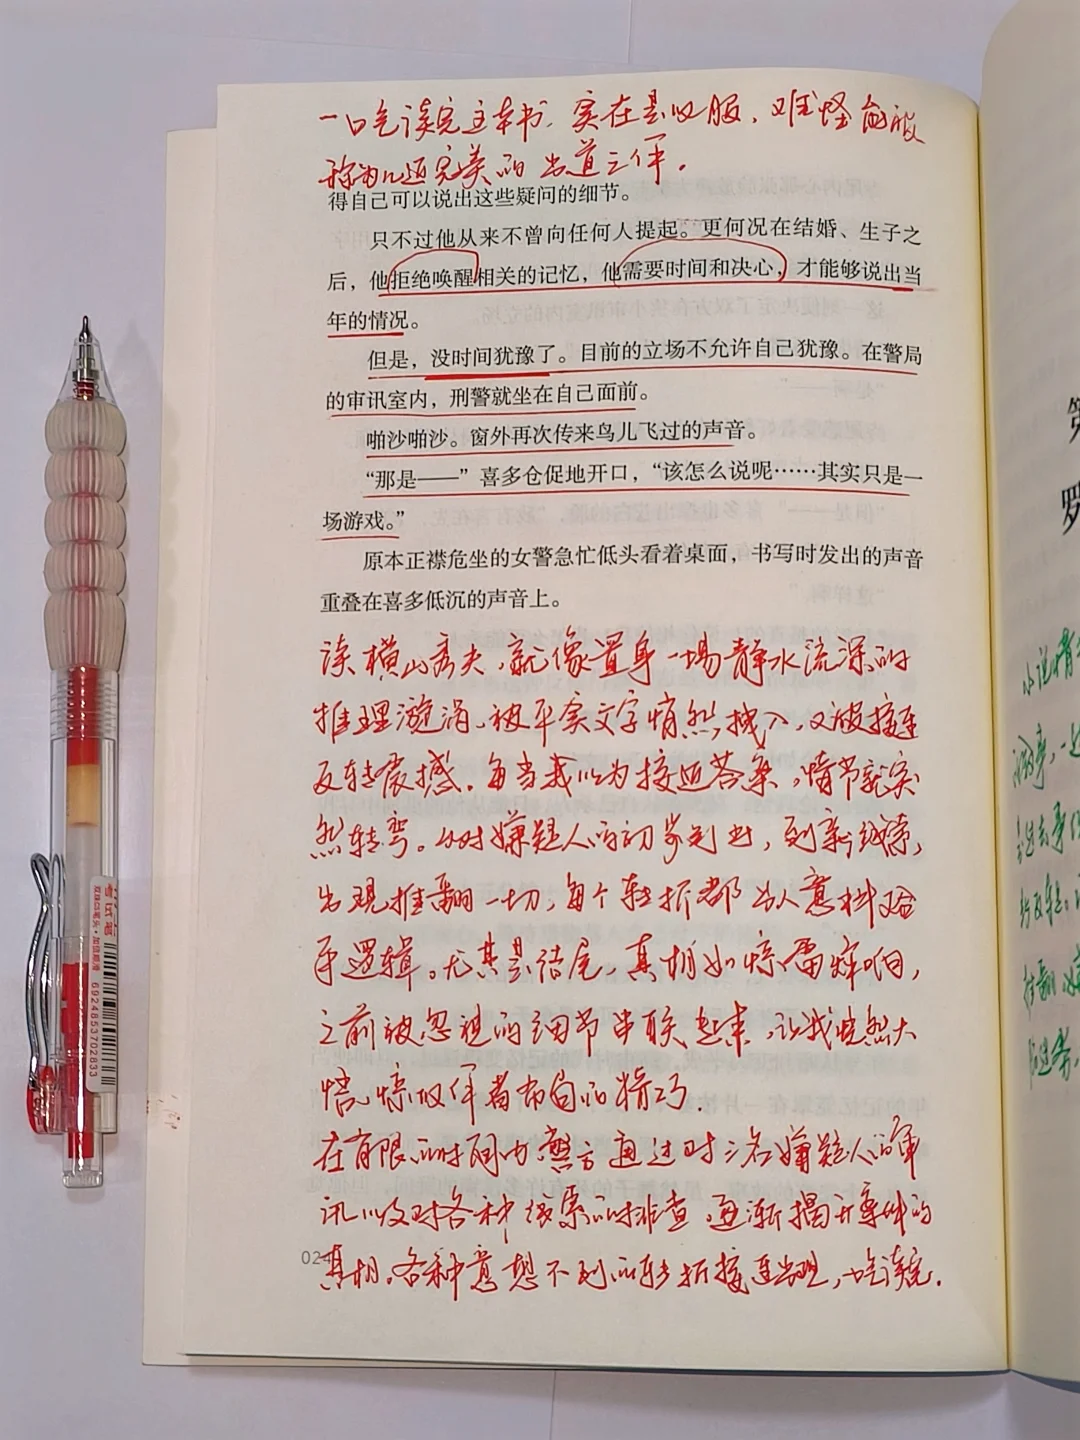 一口气读完这本书，实在是叹服，难怪能被
称为几近完美的出道之作。
得自己可以说出这些疑问的细节。
只不过他从来不曾向任何人提起。更何况在结婚、生子之
后，他拒绝唤醒相关的记忆，他需要时间和决心，才能够说出当
年的情况。
但是，没时间犹豫了。目前的立场不允许自己犹豫。在警局
的审讯室内，刑警就坐在自己面前。
啪沙啪沙。窗外再次传来鸟儿飞过的声音。
“那是——”喜多仓促地开口，“该怎么说呢……其实只是一
场游戏。”
原本正襟危坐的女警急忙低头看着桌面，书写时发出的声音
重叠在喜多低沉的声音上。
读横山秀夫，就像置身一场静水流深的
推理漩涡，被平实文字悄然拽入，又被接连
反转震撼。每当我以为接近答案，情节就突
然转弯。从对嫌疑人的初步判断，到新线索
出现推翻一切，每个转折都出人意料又合
乎逻辑。尤其是结尾，真相如惊雷炸响，
之前被忽视的细节串联起来，让我恍然大
悟，惊叹作者布局的精巧。
在有限的时间内警方通过对三名嫌疑人的审
讯以及对各种线索的排查，逐渐揭开事件的
真相。各种意想不到的转折接连出现，一口气读完。
024
考试笔
双珠白笔头·加倍顺滑
6924853702833
小说情